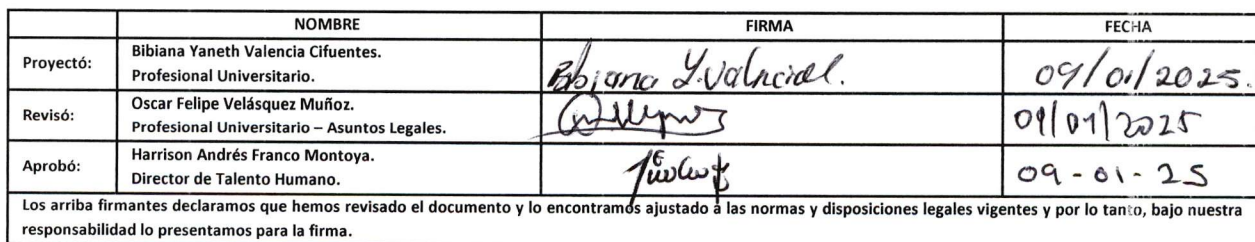 NOMBRE FIRMA FECHA
Proyectó: Bibiana Yaneth Valencia Cifuentes.
Profesional Universitario. Bibiana Y. Valencia C. 09/01/2025.
Revisó: Oscar Felipe Velásquez Muñoz.
Profesional Universitario – Asuntos Legales. 09/01/2025
Aprobó: Harrison Andrés Franco Montoya.
Director de Talento Humano. 09-01-25
Los arriba firmantes declaramos que hemos revisado el documento y lo encontramos ajustado a las normas y disposiciones legales vigentes y por lo tanto, bajo nuestra
responsabilidad lo presentamos para la firma.